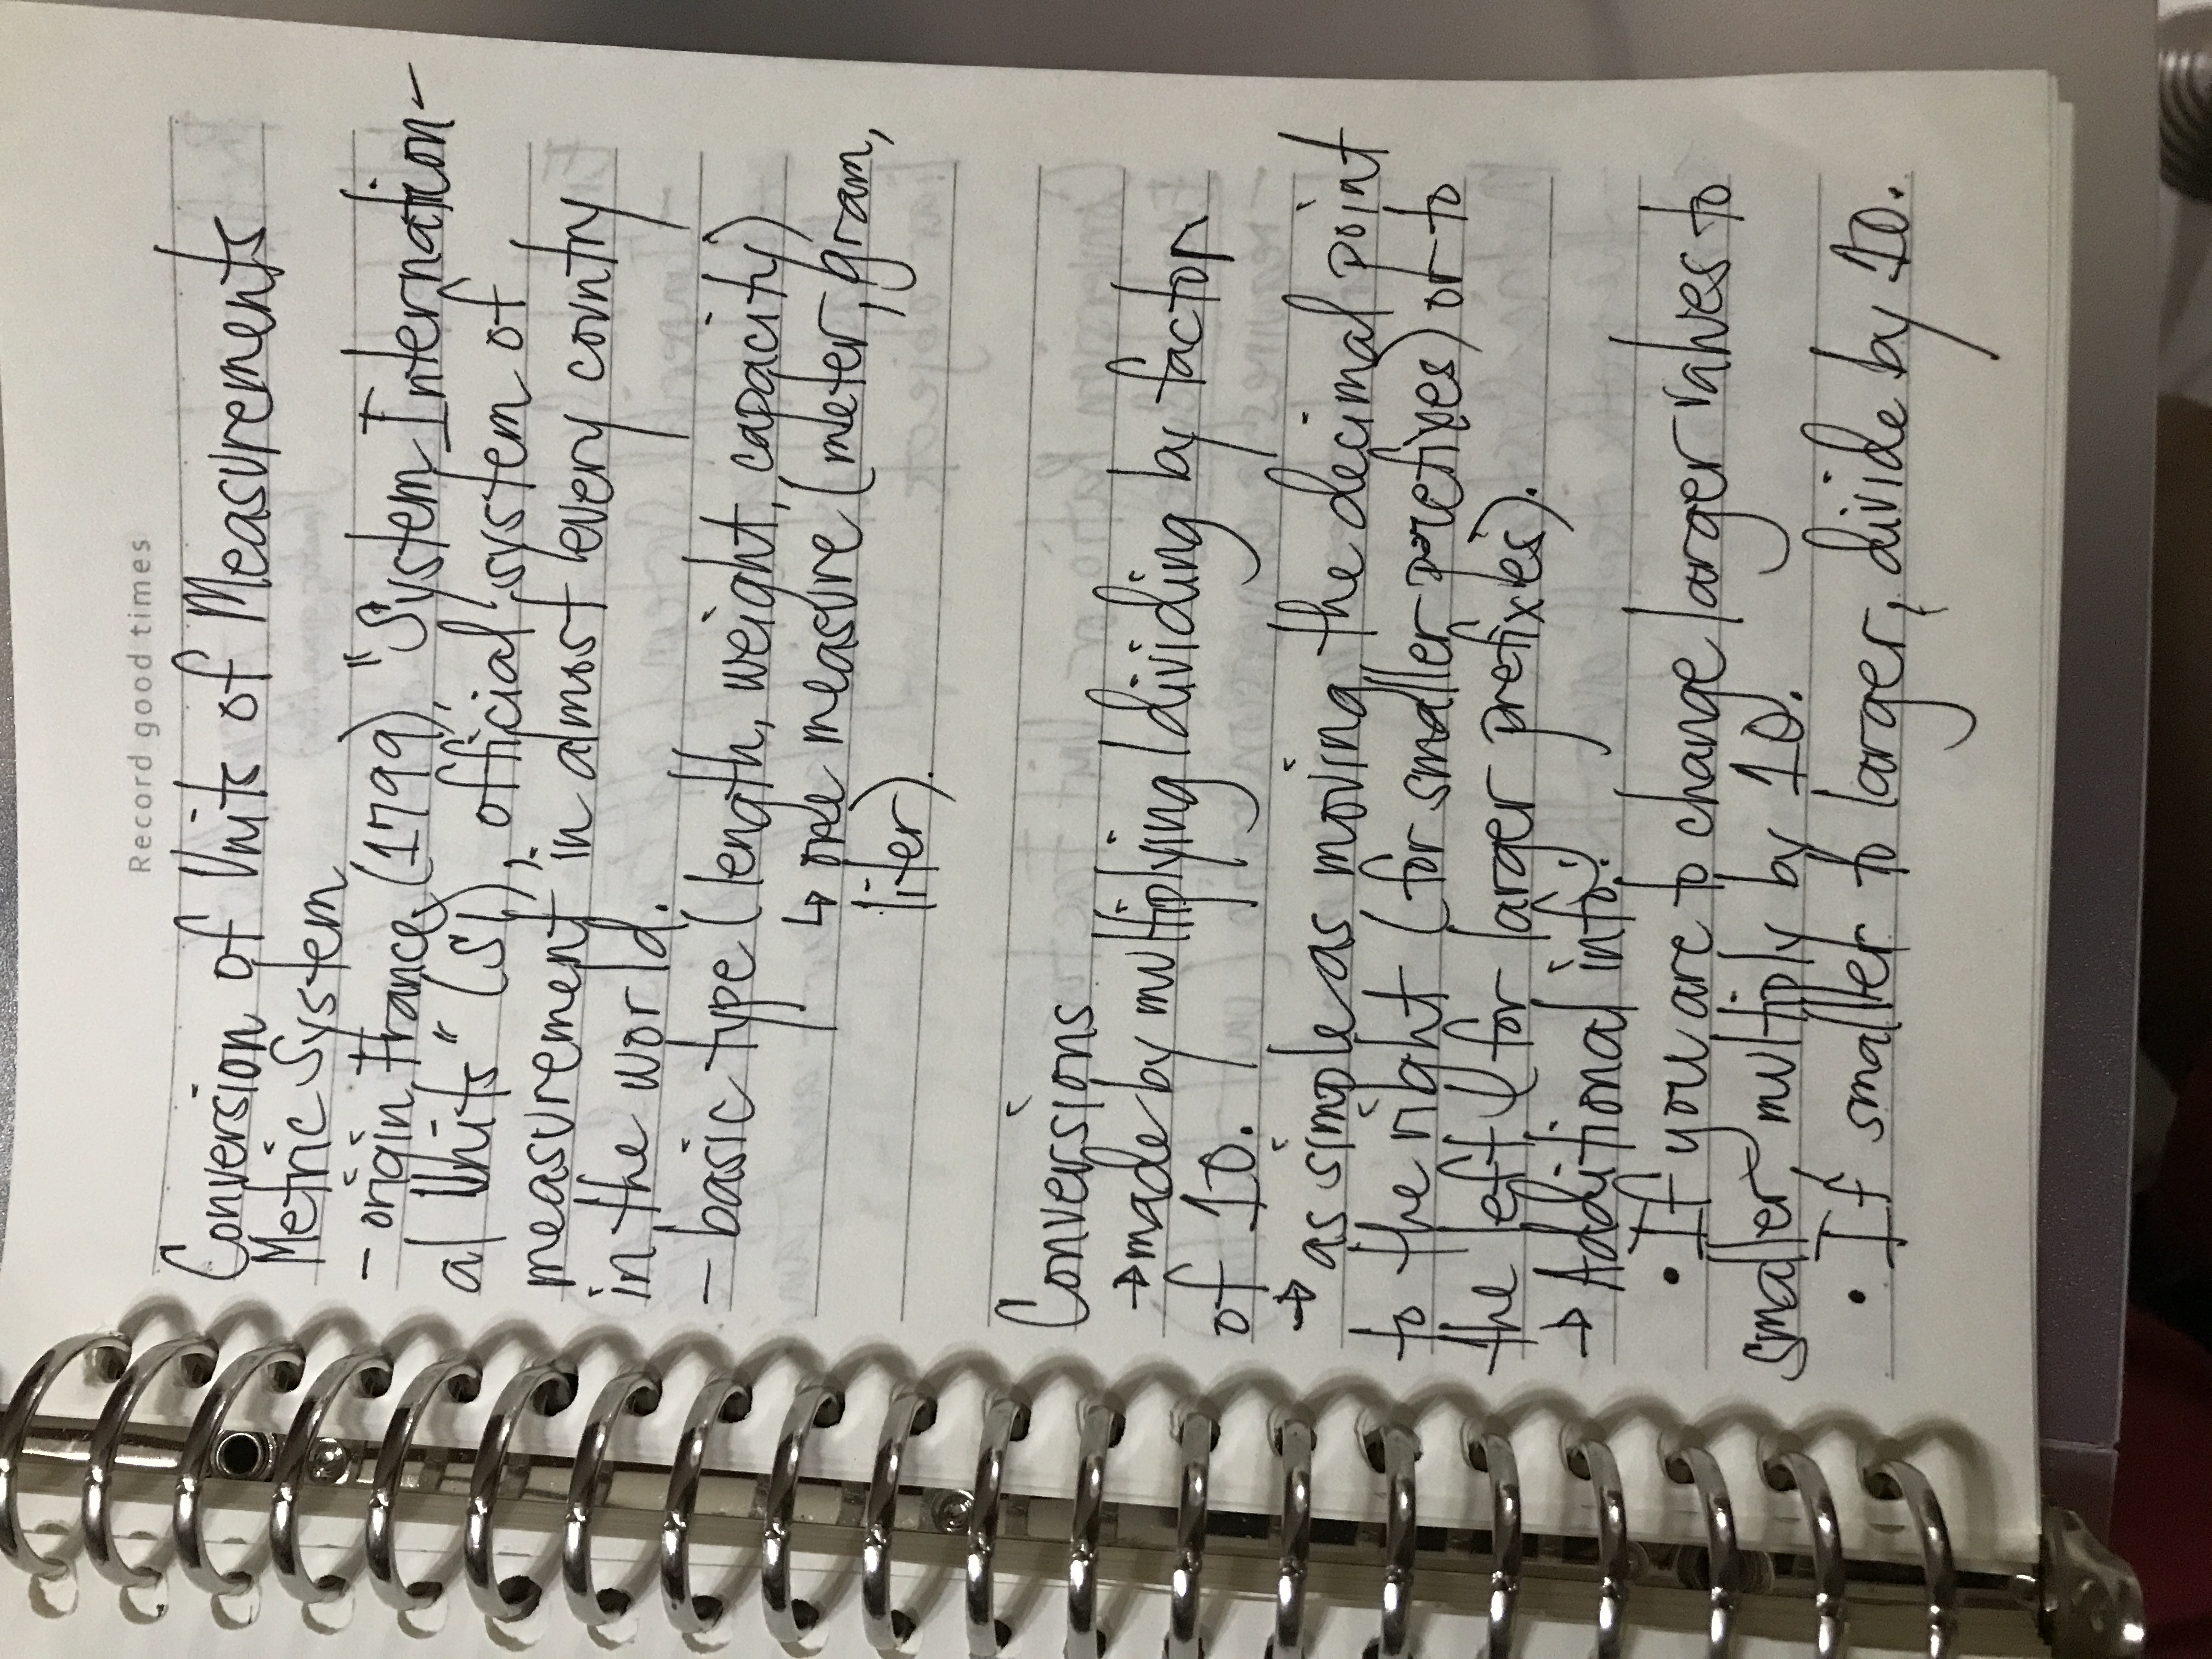 Record good times
Conversion of Units of Measurements
Metric System
- origin France (1799), "System Internation-
al Units" (SI), official system of
measurement in almost every country
in the world.
- basic type (length, weight, capacity)
↳ one measure (meter, gram,
liter).
Conversions
→ made by multiplying/dividing by factor
of 10.
→ as simple as moving the decimal point
to the right (for smaller prefixes) or to
the left (for larger prefixes).
→ Additional info:
• If you are to change larger values to
smaller, multiply by 10.
• If smaller to larger, divide by 10.